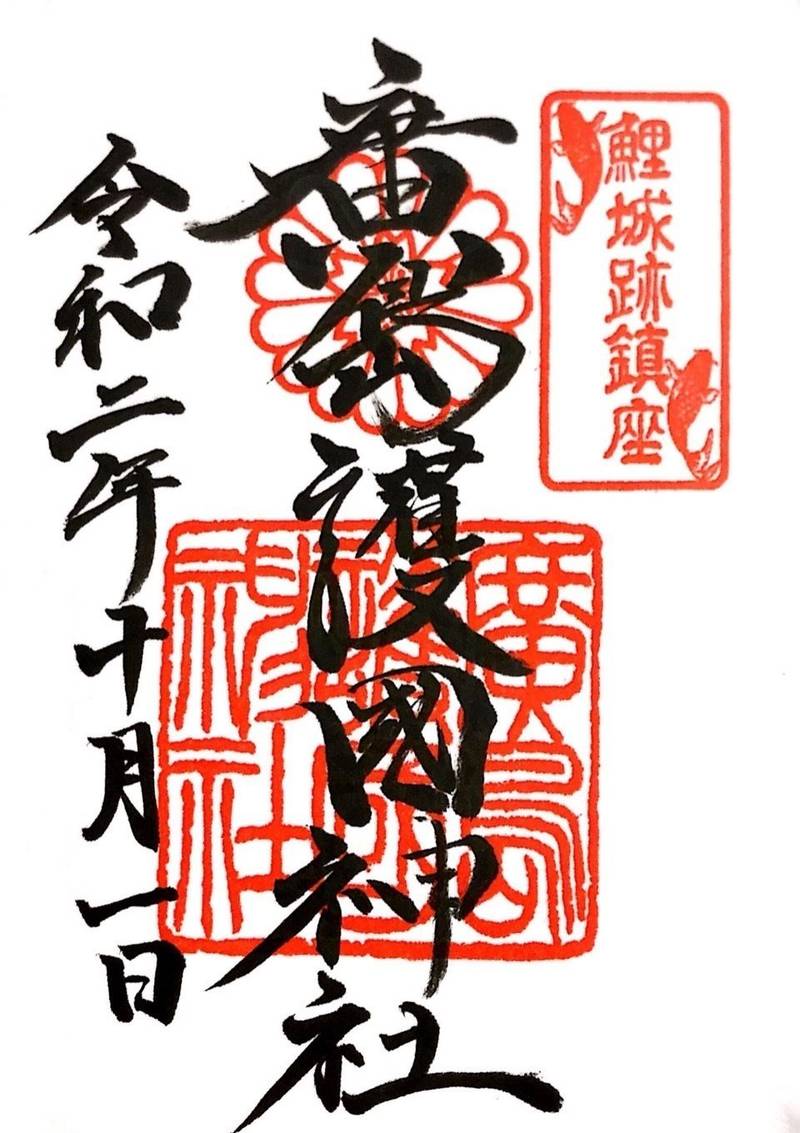 鯉城跡鎮座
廣島護國神社
廣島護國神社
令和二年十月一日